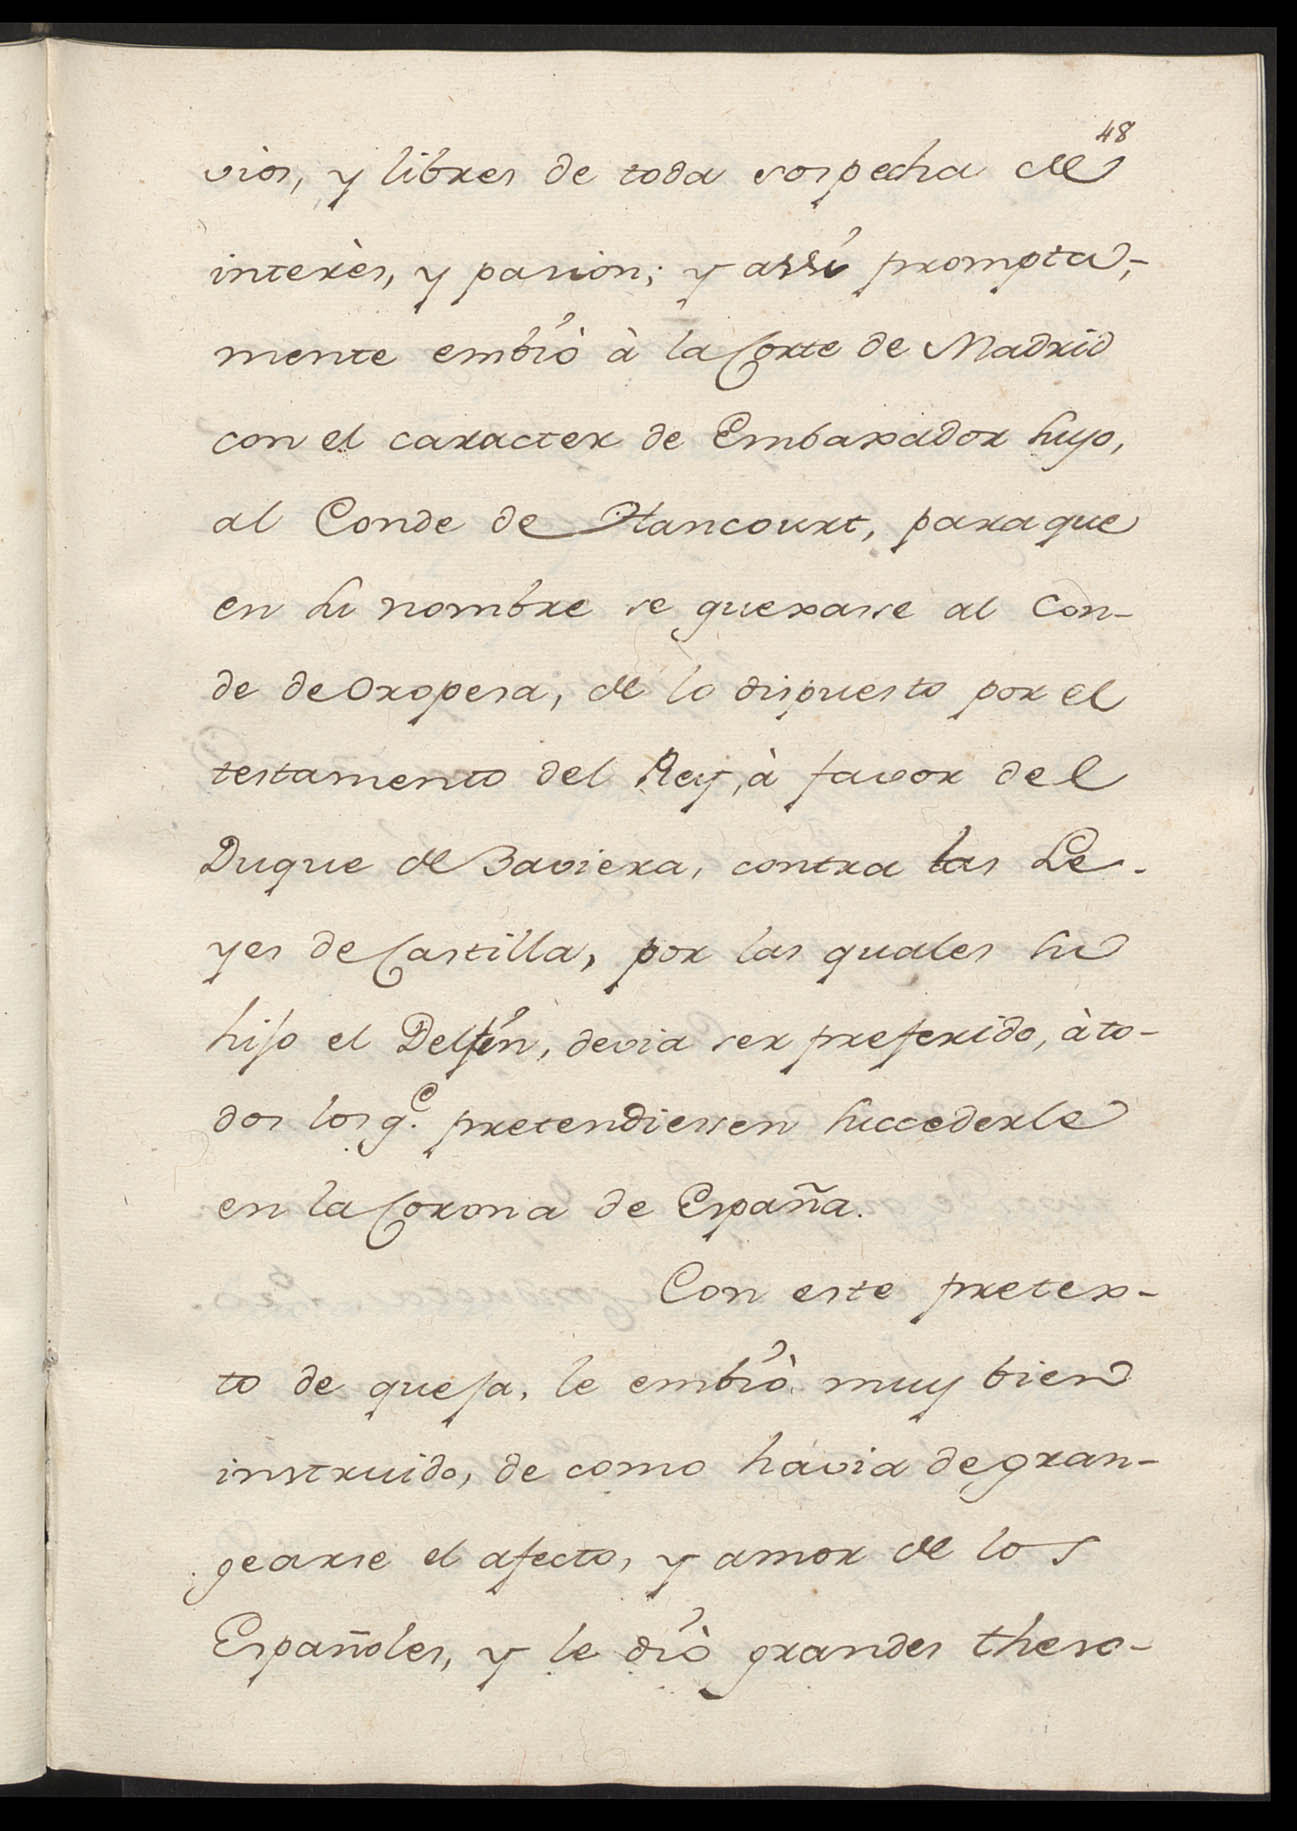 48
vios, y libres de toda sospecha de
interès, y passion; y assi prompta-
mente embiò à la Corte de Madrid
con el caracter de Embaxador suyo,
al Conde de Hancourt, paraque
en su nombre se quexasse al Con-
de de Oropesa, de lo dispuesto por el
testamento del Rey, à favor del
Duque de Baviera, contra las Le-
yes de Castilla, por las quales su
hijo el Delfin, devia ser preferido, à to-
dos los q.e pretendiessen succederle
en la Corona de España.
Con este pretex-
to de queja, le embiò muy bien
instruido, de como havia de gran-
gearse el afecto, y amor de los
Españoles, y le diò grandes theso-